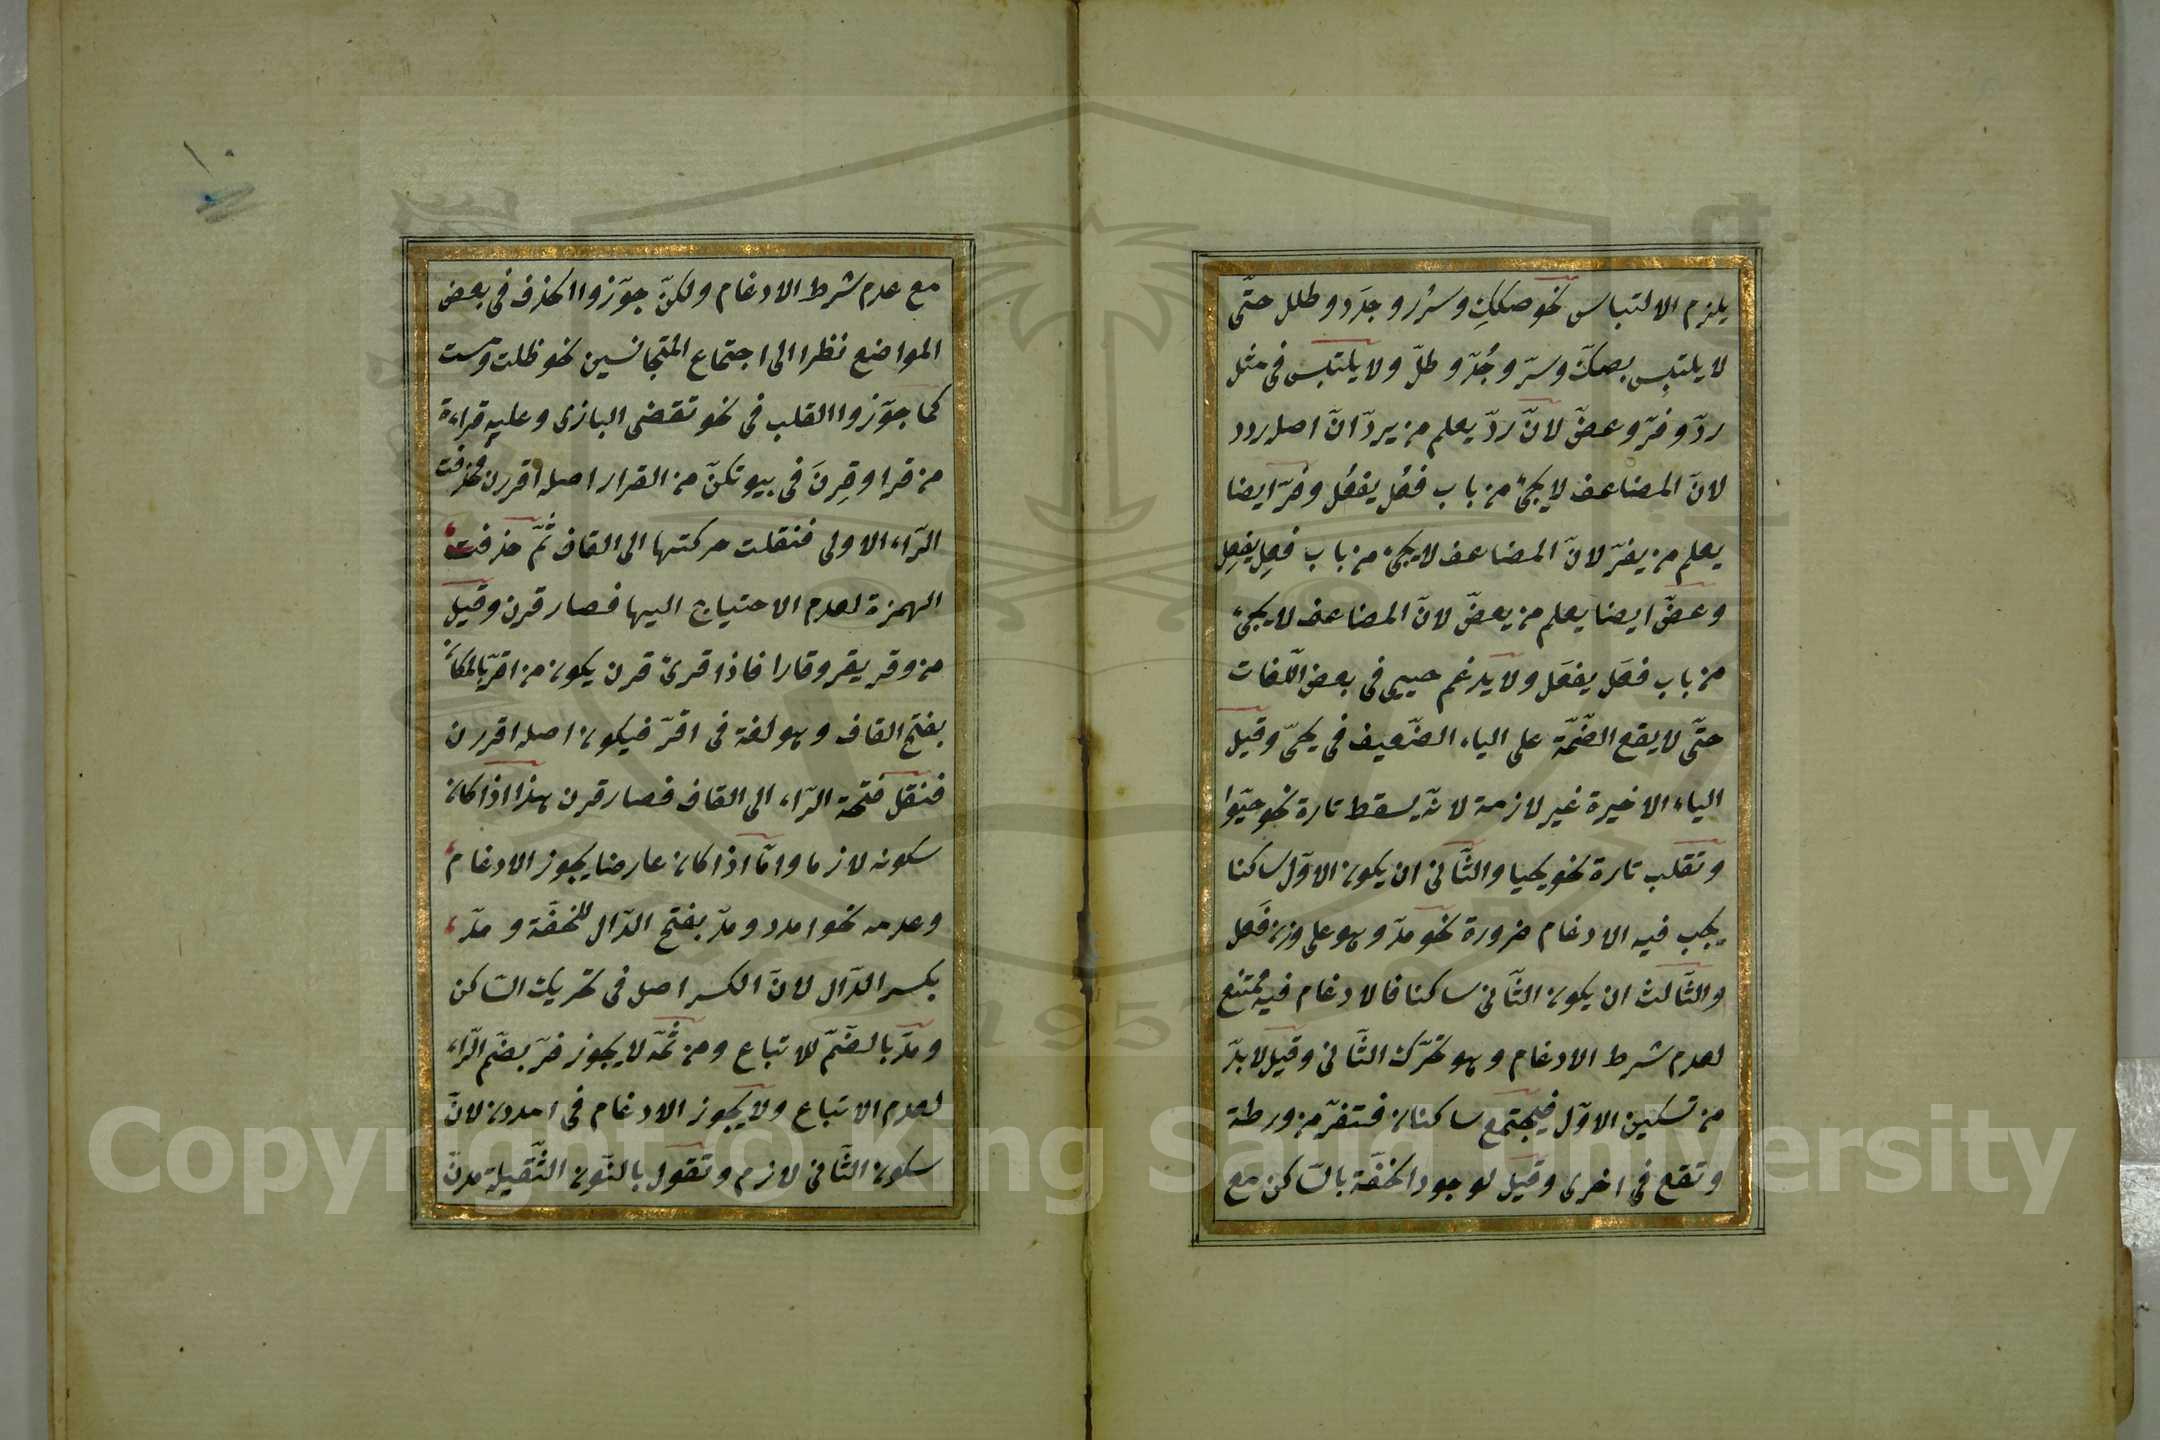 يلزم الالتباس نحو صكك وسرر وجدد وطلل حتّى
لا يلتبس بصكّ وسرّ وجُدّ وطلّ ولا يلتبس فى مثل
ردّ وفرّ وعضّ لانّ ردّ يعلم من يردّ انّ اصله ردد
لانّ المضاعف لا يجئ من باب فعُل يفعُل وفرّ ايضا
يعلم من يفرّ لانّ المضاعف لا يجئ من باب فعِل يفعِل
وعضّ ايضا يعلم من يعضّ لانّ المضاعف لا يجئ
من باب فعَل يفعَل ولا يدغم حيى فى بعض اللّغات
حتّى لا يقع الضّمّة على الياء الضّعيف فى يحىّ وقيل
الياء الاخيرة غير لازمة لانّه يسقط تارة نحو حيّوا
وتقلب تارة نحو يحيا والثّانى ان يكون الاوّل ساكنا
يجب فيه الادغام ضرورة نحو مدّ وهو على وزن فَعل
والثّالث ان يكون الثّانى ساكنا فالادغام فيه ممتنع
لعدم شرط الادغام وهو تحرّك الثّانى وقيل لا بدّ
من تسكين الاوّل فيجتمع ساكنان فتفرّ من ورطة
وتقع فى اخرى وقيل لوجود الخفّة بالسّاكن مع
١٠
مع عدم شرط الادغام ولكنّ جوّزوا الحذف فى بعض
المواضع نظرا الى اجتماع المتجانسين نحو ظلت ومست
كما جوّزوا القلب فى نحو تقضى البازى وعليه قراءة
من قرا وقِرنَ فى بيوتكنّ من القرار اصله اقررن فحذفت
الرّاء الاولى فنقلت حركتها الى القاف ثمّ حذفت
الهمزة لعدم الاحتياج اليها فصار قرن وقيل
من وقر يقر وقارا فاذا قرئ قرن يكون من اقرّ بالمكان
بفتح القاف وهو لغة فى اقرّ فيكون اصله اقررن
فنقل فتحة الرّاء الى القاف فصار قرن هذا اذا كان
سكونه لازما وامّا اذا كان عارضا يجوز الادغام
وعدمه نحو امدد ومدّ بفتح الدّال للخفّة ومدّ
بكسر الدّال لانّ الكسر اصل فى تحريك السّاكن
ومدّ بالضّمّ للاتباع ومن ثمّه لا يجوز فرّ بضمّ الرّاء
لعدم الاتباع ولا يجوز الادغام فى امددن لانّ
سكون الثّانى لازم وتقول بالنّون الثّقيلة مدنّ
Copyright © King Saud University
1957